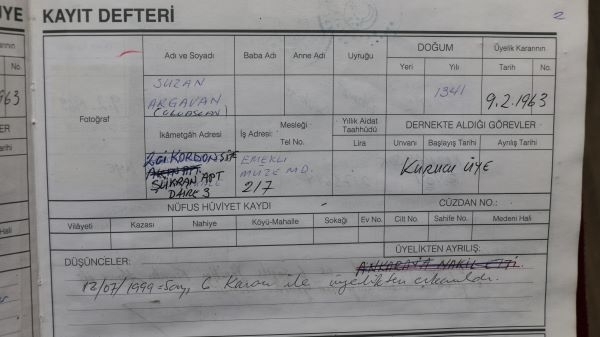 ÜYE
KAYIT DEFTERİ
2
Adı ve Soyadı
Baba Adı
Anne Adı
Uyruğu
DOĞUM
Üyelik Kararının
Yeri
Yılı
Tarih
No.
Fotoğraf
SUZAN
AKGAVAN
1341
9.2.1963
İkâmetgâh Adresi
İş Adresi:
Mesleği
Tel No.
Yıllık Aidat
Taahhüdü
Lira
DERNEKTE ALDIĞI GÖREVLER
Unvanı
Başlayış Tarihi
Ayrılış Tarihi
KORDON
ŞÜKRAN APT
DAİRE 3
EMEKLİ
MUZE MD.
217
KURUCU ÜYE
NÜFUS HÜVİYET KAYDI
CÜZDAN NO.:
Vilâyeti
Kazası
Nahiye
Köyü-Mahalle
Sokağı
Ev No.
Cilt No.
Sahife No.
Medeni Hali
ÜYELİKTEN AYRILIŞ:
DÜŞÜNCELER:
ANKARA'YA NAKİL ETTİ.
12/07/1999 Sayı 6 Karar ile üyelikten çıkarıldı.